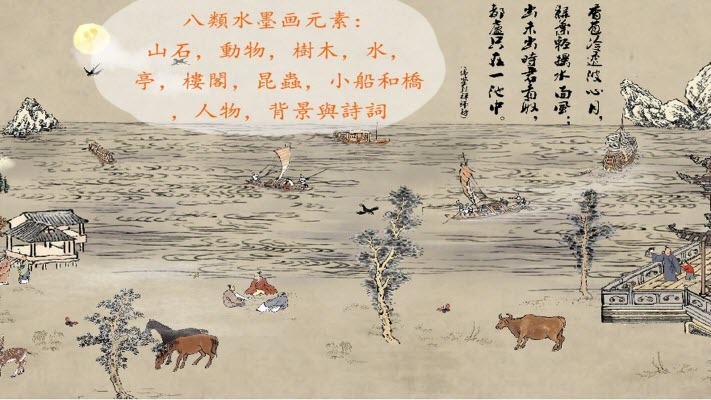 八類水墨画元素：
山石，動物，樹木，水，
亭，樓閣，昆蟲，小船和橋
，人物，背景與詩詞
香苞冷透波心月，
綠葉輕搖水面風；
出未出時君看取，
都盧只在一池中。